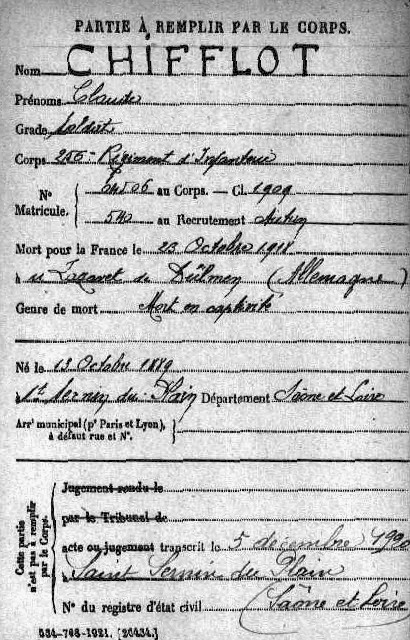 PARTIE À REMPLIR PAR LE CORPS.
Nom CHIFFLOT
Prénoms Claude
Grade soldat
Corps 256e Régiment d'Infanterie
N° Matricule. 64506 au Corps. — Cl. 1909
540 au Recrutement Autun
Mort pour la France le 23 Octobre 1918
à Lazaret de Dülmen (Allemagne)
Genre de mort Mort en captivité
Né le 13 Octobre 1889
à St Sernin du Plain Département Saône et Loire
Arrt municipal (pr Paris et Lyon), à défaut rue et N°.
Cette partie n'est pas à remplir par le Corps.
Jugement rendu le
par le Tribunal de
acte ou jugement transcrit le 5 décembre 1920
à Saint Sernin du Plain
N° du registre d'état civil (Saône et Loire
534-708-1921. [26434.]